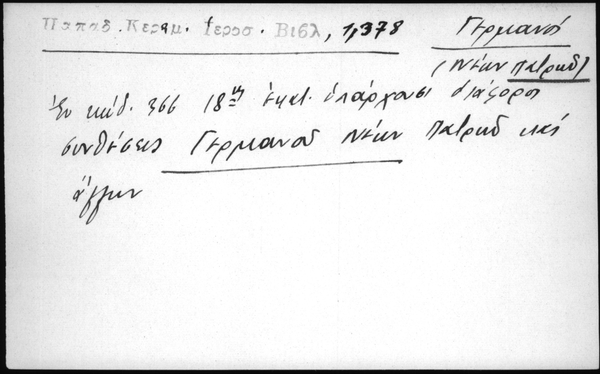 Παπαδ. Κεραμ. Ιεροσ. Βιβλ, 1,378
Γερμανός
(Νέων Πατρών)
Ἐν κώδ. 366 18ης ἑκατ. ὑπάρχουσι διάφοροι
συνθέσεις Γερμανοῦ Νέων Πατρῶν καὶ
ἄλλων